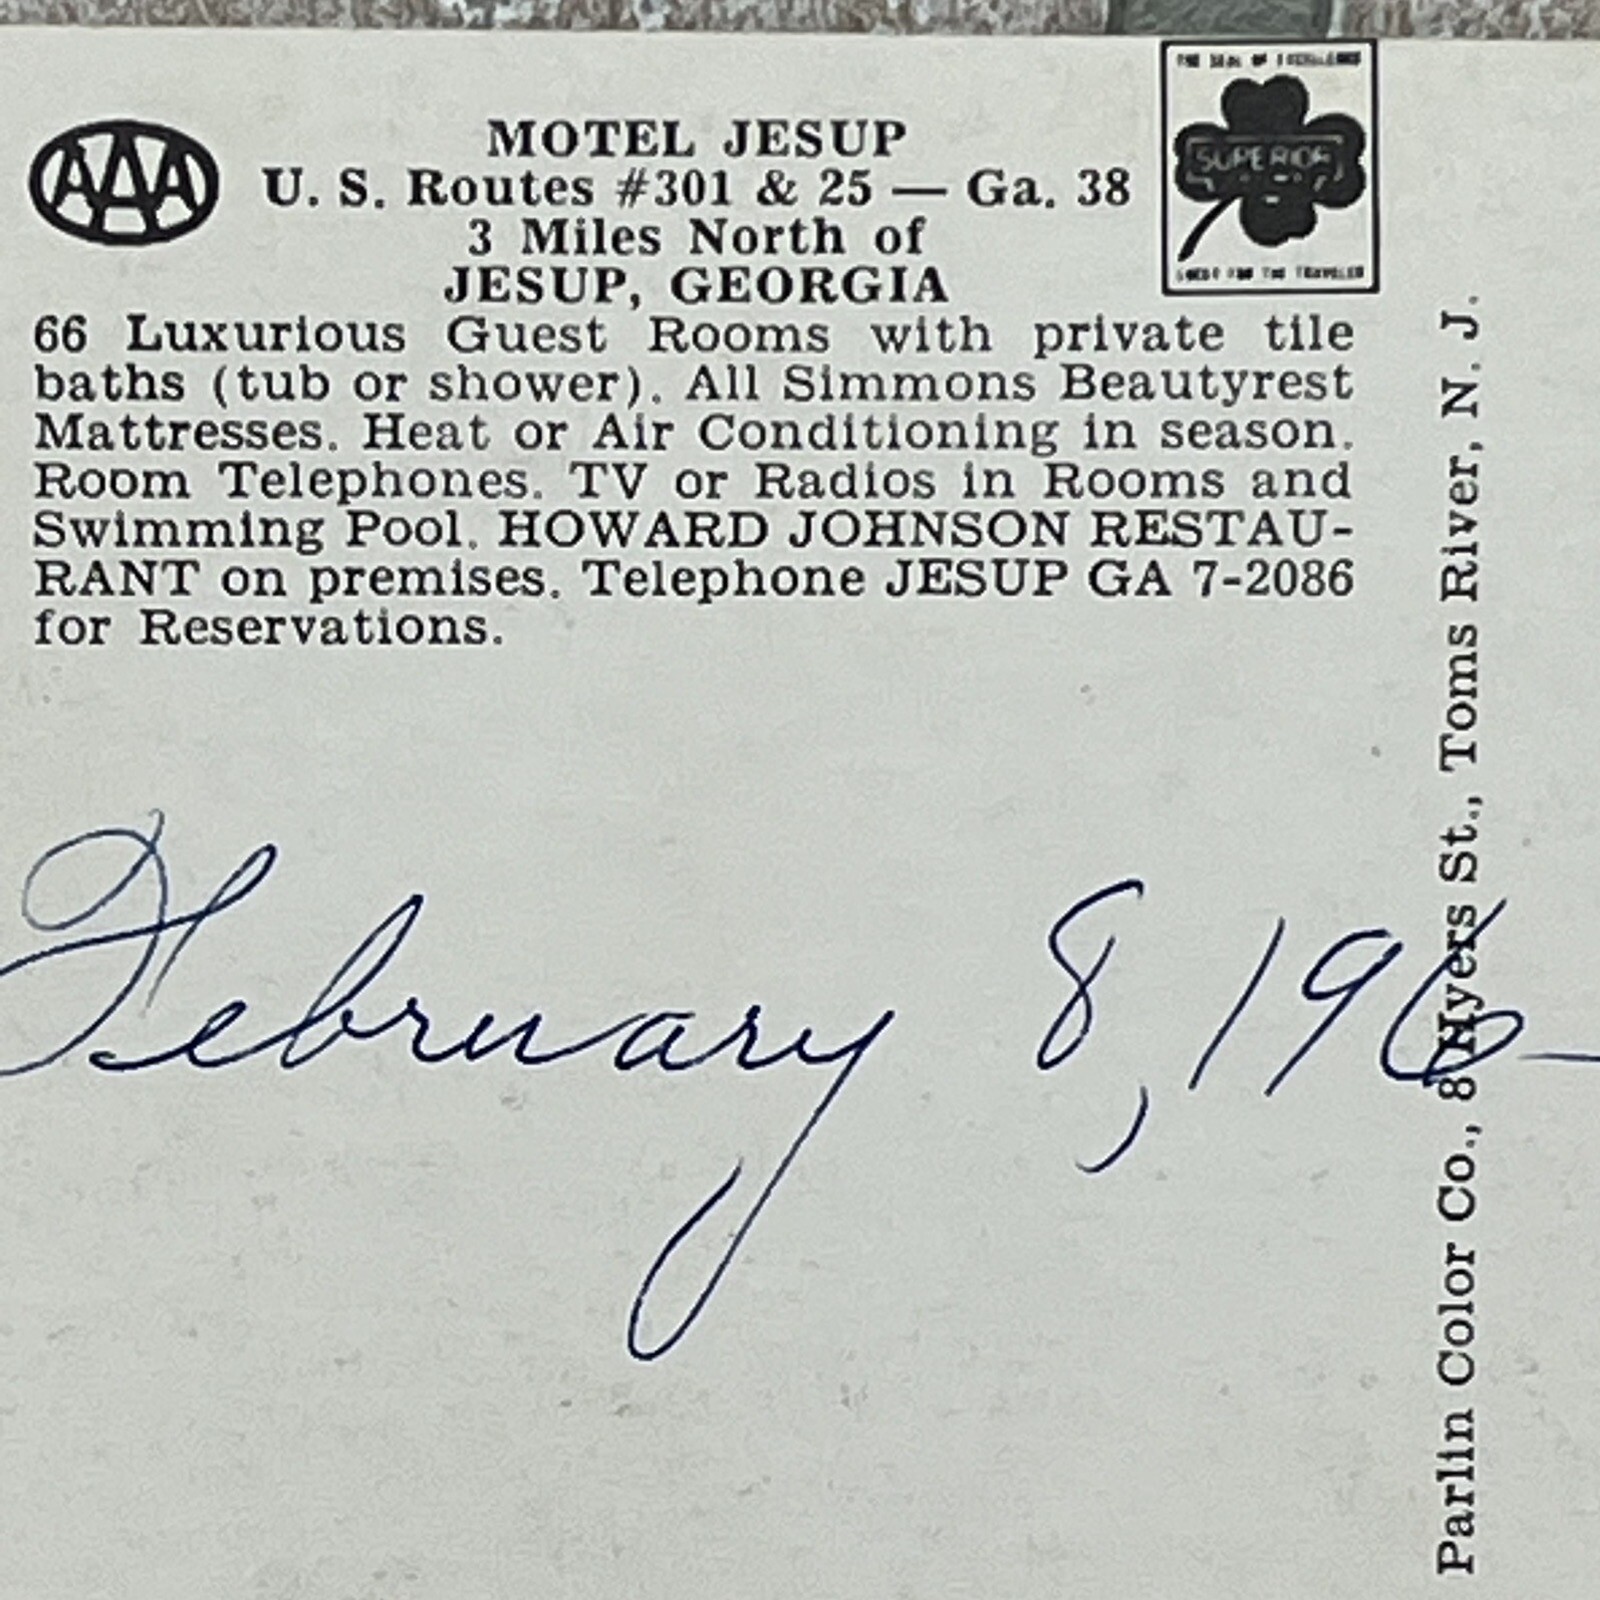 AAA
MOTEL JESUP
U. S. Routes #301 & 25 — Ga. 38
3 Miles North of
JESUP, GEORGIA
SUPERIOR
66 Luxurious Guest Rooms with private tile
baths (tub or shower). All Simmons Beautyrest
Mattresses. Heat or Air Conditioning in season.
Room Telephones. TV or Radios in Rooms and
Swimming Pool. HOWARD JOHNSON RESTAU-
RANT on premises. Telephone JESUP GA 7-2086
for Reservations.
February 8, 196
Parlin Color Co., 8 Hyers St., Toms River, N. J.